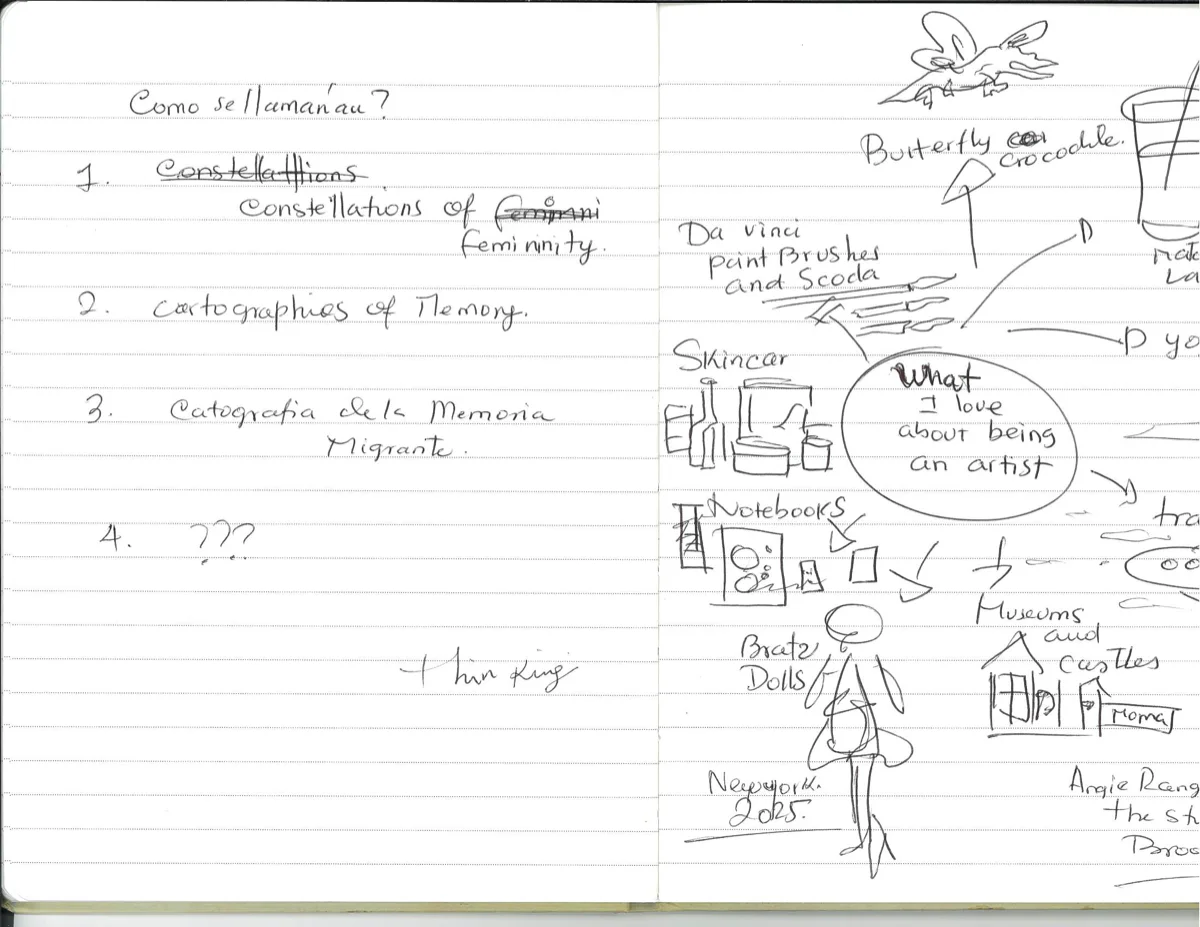 Como se llamarían?
1. Constellattions
Constellations of Feminini
femininity.
2. Cartographies of Memory.
3. Catografia de la Memoria
Migrante.
4. ???
thinking
Butterfly
crocodile.
Da vinci
paint Brushes
and Scoda
Skincar
What
I love
about being
an artist
Notebooks
Bratz
Dolls
Museums
and
Castles
Moma
Newyork.
2025.
Angie Rang
the st
Broo
yo
tra
La